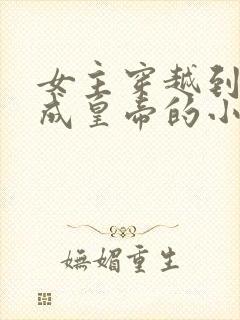 女主穿越到
成皇帝的小
嫵媚重生